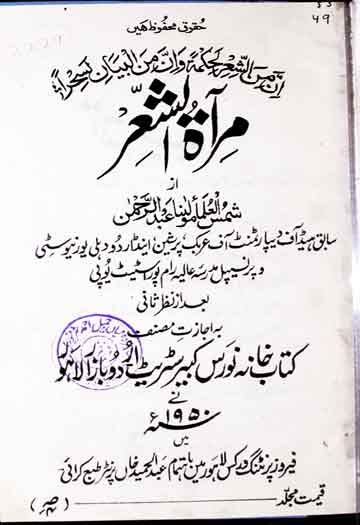 ٤٩
حقوق محفوظ ہیں
اِنَّ مِنَ الشِّعرِ لَحِکمَةً وَاِنَّ مِنَ البَیَانِ لَسِحراً
مِرآةُ الشِّعر
از
شمس العلماء مولینا عبدالرحمٰن
سابق ہیڈ آف دیپارٹمنٹ آف عربک، پرشین اینڈ اردو دہلی یونیورسٹی
و پرنسپل مدرسہ عالیہ رام پور سٹیٹ یوپی
بعد از نظر ثانی
بہ اجازت مصنف
کتاب خانہ نورس کبیر سٹریٹ اردو بازار لاہور
نے
۱۹۵۰ء
میں
فیروز پرنٹنگ ورکس لاہور میں باہتمام عبدالحمید خاں پرنٹر طبع کرائی
قیمت مجلد